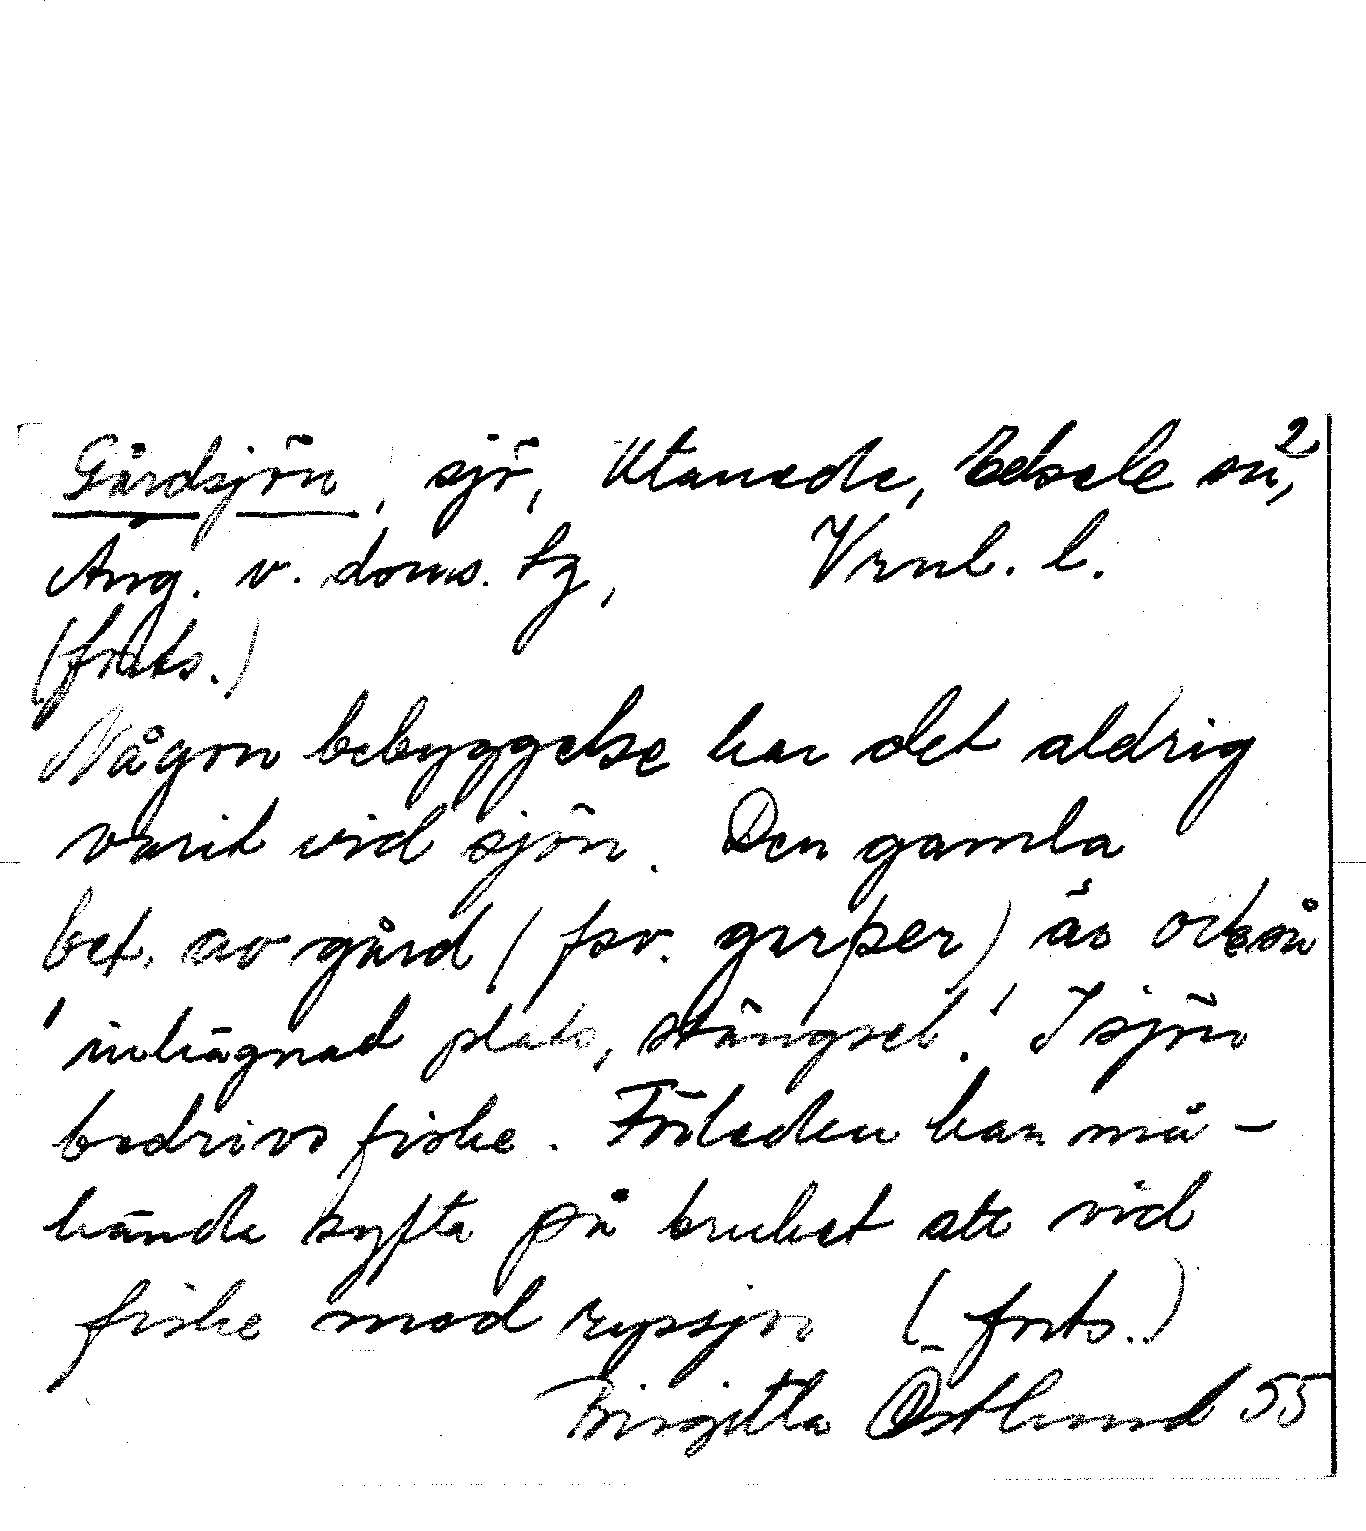 Gårdsjön, sjö, Utanede, Edsele sn, 2
Ång. v. doms. tg, Vrnl. l.
(forts.)
Någon bebyggelse har det aldrig
varit vid sjön. Den gamla
bet. av gård (fsv. garþer) är också
'inhägnad plats, stängsel.' I sjön
bedrivs fiske. Förleden kan må-
hända syfta på bruket att vid
fiske med ryssjor (forts.)
Birgitta Östlund 55